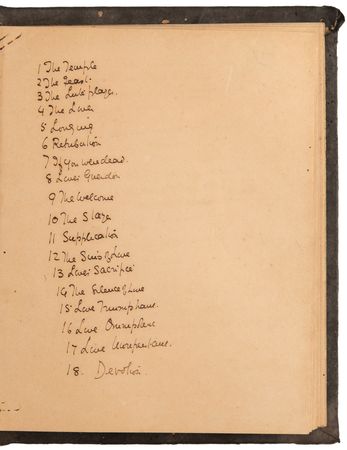 1 The Temple
2 The Feast.
3 The Lute player.
4 The Lover
5 Longing
6 Retribution
7 If you were dead.
8 Love's Guerdon
9 The Welcome
10 The Slayer
11 Supplication
12 The Sins of Love
13 Love's Sacrifice
14 The Silence of Love
15 Love Triumphant.
16 Love Omnipotent
17 Love
18. Devotion.